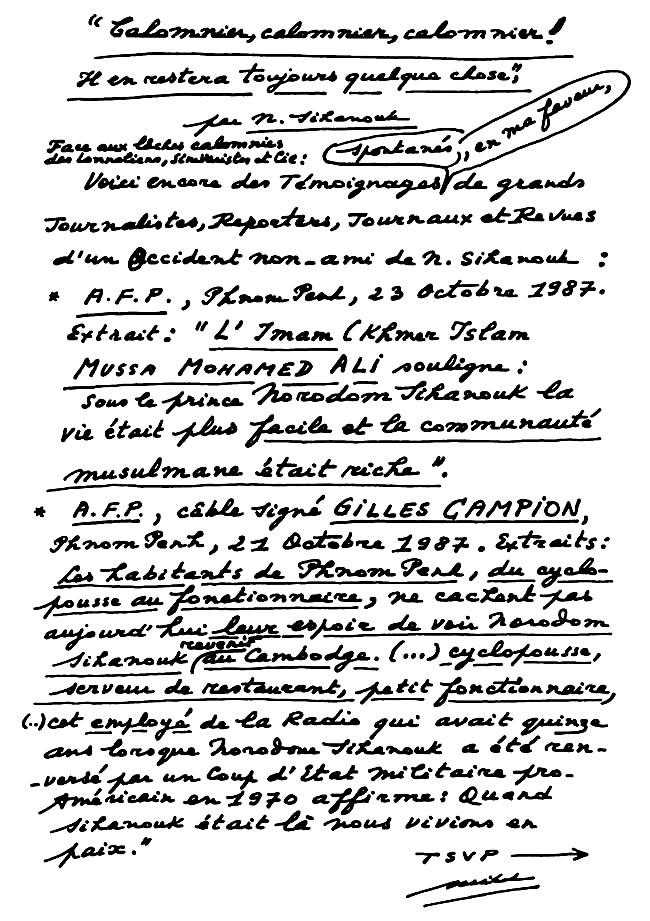 “Calomnier, calomnier, calomnier!
Il en restera toujours quelque chose”,
par N. Sihanouk
Face aux lâches calomnies
des Lonnoliens, Sirikistes et Cie:
spontanés, en ma faveur,
Voici encore des Témoignages de grands
Journalistes, Reporters, Journaux et Revues
d'un Occident non-ami de N. Sihanouk :
* A.F.P., Phnom Penh, 23 Octobre 1987.
Extrait: “L'Imam (Khmer Islam
MUSSA MOHAMED ALI souligne:
Sous le prince Norodom Sihanouk la
vie était plus facile et la communauté
musulmane était riche”.
* A.F.P., câble signé GILLES CAMPION,
Phnom Penh, 21 Octobre 1987. Extraits:
Les habitants de Phnom Penh, du cyclo-
pousse au fonctionnaire, ne cachent pas
aujourd'hui leur espoir de voir Norodom
revenir
Sihanouk au Cambodge. (...) cyclopousse,
serveur de restaurant, petit fonctionnaire,
(..) cet employé de la Radio qui avait quinze
ans lorsque Norodom Sihanouk a été ren-
-versé par un Coup d'Etat militaire pro-
Américain en 1970 affirme: Quand
Sihanouk était là nous vivions en
paix.”
TSVP →